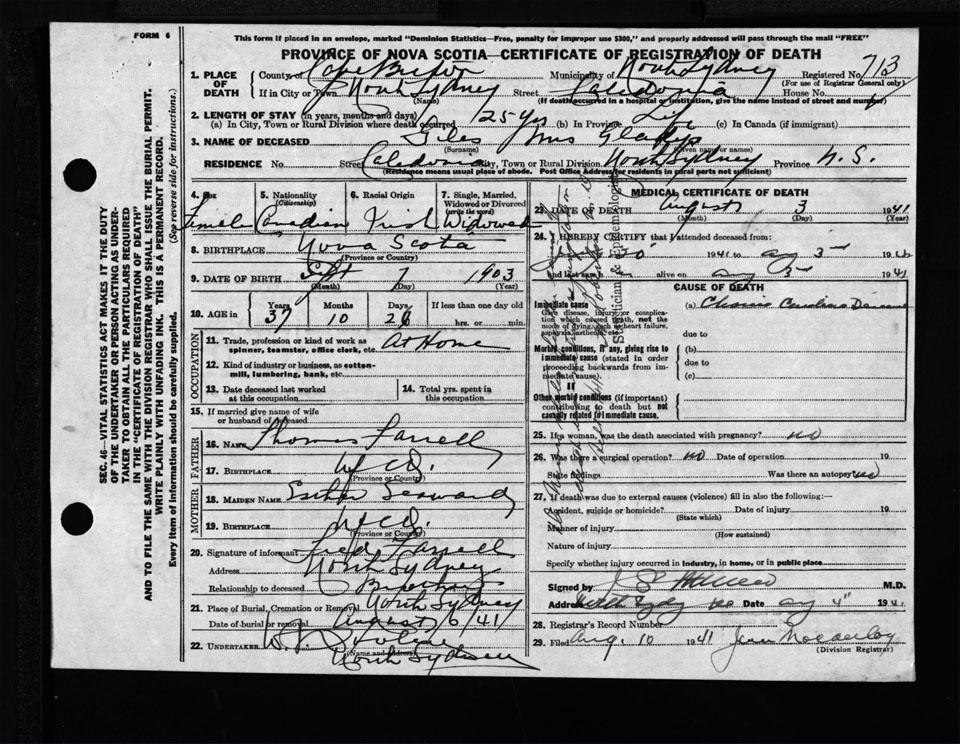 FORM 6
This form if placed in an envelope, marked "Dominion Statistics—Free, penalty for improper use $300," and properly addressed will pass through the mail "FREE"
PROVINCE OF NOVA SCOTIA—CERTIFICATE OF REGISTRATION OF DEATH
1. PLACE OF DEATH County of Cape Breton Municipality of North Sydney Registered No. 713
(For use of Registrar General only)
If in City or Town North Sydney Street Caledonia House No.
(Name) (If death occurred in a hospital or institution, give the name instead of street and number)
2. LENGTH OF STAY (in years, months and days)
(a) In City, Town or Rural Division where death occurred 25 yrs (b) In Province Life (c) In Canada (if immigrant)
3. NAME OF DECEASED Giles Mrs Gladys
(Surname) (Given name or names)
RESIDENCE No. Street Caledonia City, Town or Rural Division North Sydney Province N. S.
(Residence means usual place of abode. Post Office Address for residents in rural parts not sufficient)
4. Sex Female
5. Nationality (Citizenship) Canadian
6. Racial Origin Irish
7. Single, Married, Widowed or Divorced (write the word) Widowed
8. BIRTHPLACE Nova Scota
(Province or Country)
9. DATE OF BIRTH Sept 7 1903
(Month) (Day) (Year)
10. AGE in Years 37 Months 10 Days 26 If less than one day old hrs. or min.
OCCUPATION
11. Trade, profession or kind of work as spinner, teamster, office clerk, etc. At Home
12. Kind of industry or business, as cotton-mill, lumbering, bank, etc.
13. Date deceased last worked at this occupation
14. Total yrs. spent in this occupation
15. If married give name of wife or husband of deceased
FATHER
16. Name Thomas Farrell
17. Birthplace Nfld.
(Province or Country)
MOTHER
18. Maiden Name Esther Seaward
19. Birthplace Nfld.
(Province or Country)
20. Signature of informant Fred Farrell
Address North Sydney
Relationship to deceased Brother
21. Place of Burial, Cremation or Removal North Sydney
Date of burial or removal August 6/41
22. Undertaker
(Name and address)
North Sydney
MEDICAL CERTIFICATE OF DEATH
23. DATE OF DEATH August 3 1941
(Month) (Day) (Year)
24. I HEREBY CERTIFY that I attended deceased from:
30 1941 to Aug 3rd 1941
and last saw h alive on Aug 3rd 1941
CAUSE OF DEATH
Immediate cause
Give disease, injury or complication which caused death, not the mode of dying, such as heart failure, asphyxia, asthenia, etc.
(a)
due to
Morbid conditions, if any, giving rise to immediate cause (stated in order proceeding backwards from immediate cause).
(b)
due to
(c)
II
Other morbid conditions (if important) contributing to death but not causally related to immediate cause.
25. If a woman, was the death associated with pregnancy? no
26. Was there a surgical operation? no Date of operation 19
State findings Was there an autopsy? no
27. If death was due to external causes (violence) fill in also the following:—
Accident, suicide or homicide? Date of injury 19
(State which)
Manner of injury
(How sustained)
Nature of injury
Specify whether injury occurred in industry, in home, or in public place
Signed by M.D.
Address Date Aug 4" 1941
28. Registrar's Record Number
29. Filed Aug. 10 1941
(Division Registrar)
Statistician & Epidemiologist
SEC. 46—VITAL STATISTICS ACT MAKES IT THE DUTY
OF THE UNDERTAKER OR PERSON ACTING AS UNDER-
TAKER TO OBTAIN ALL THE PARTICULARS REQUIRED
IN THE "CERTIFICATE OF REGISTRATION OF DEATH"
AND TO FILE THE SAME WITH THE DIVISION REGISTRAR WHO SHALL ISSUE THE BURIAL PERMIT.
WRITE PLAINLY WITH UNFADING INK. THIS IS A PERMANENT RECORD.
Every item of information should be carefully supplied. (See reverse side for instructions.)